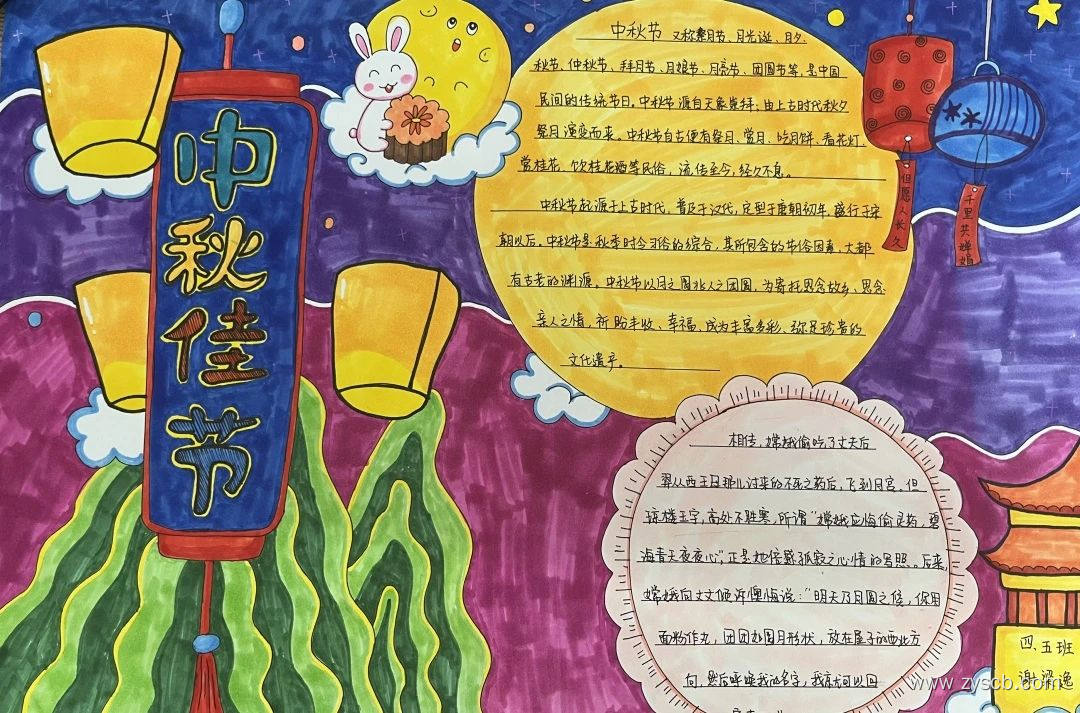 中秋佳节
中秋节 又称祭月节、月光诞、月夕、
秋节、仲秋节、拜月节、月娘节、月亮节、团圆节等，是中国
民间的传统节日。中秋节源自天象崇拜，由上古时代秋夕
祭月演变而来。中秋节自古便有祭月、赏月、吃月饼、看花灯、
赏桂花、饮桂花酒等民俗，流传至今，经久不息。
中秋节起源于上古时代，普及于汉代，定型于唐朝初年，盛行于宋
朝以后。中秋节是秋季时令习俗的综合，其所包含的节俗因素，大都
有古老的渊源。中秋节以月之圆兆人之团圆，为寄托思念故乡、思念
亲人之情，祈盼丰收、幸福，成为丰富多彩、弥足珍贵的
文化遗产。
但愿人长久
千里共婵娟
相传，嫦娥偷吃了丈夫后
羿从西王母那儿讨来的不死之药后，飞到月宫。但
琼楼玉宇，高处不胜寒，所谓“嫦娥应悔偷灵药，碧
海青天夜夜心”，正是她倍感孤寂之心情的写照。后来，
嫦娥向丈夫倾诉懊悔说：“明天乃月圆之候，你用
面粉作丸，团团如圆月形状，放在屋子的西北方
向，然后呼唤我的名字，我就可以回
四、五班
谢梁逸
www.zyscb.com